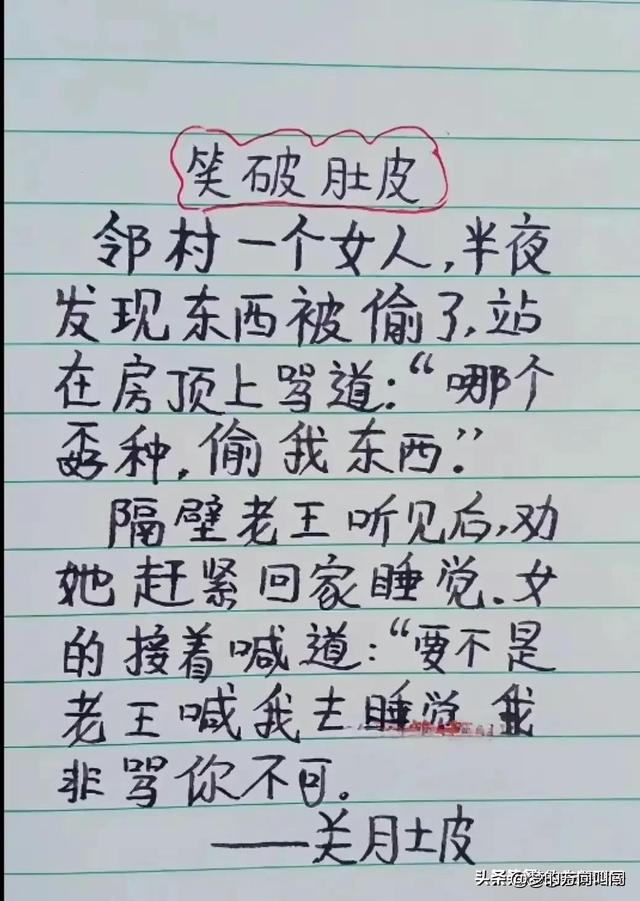 笑破肚皮
邻村一个女人,半夜
发现东西被偷了,站
在房顶上骂道:“哪个
孬种,偷我东西.”
隔壁老王听见后,劝
她赶紧回家睡觉.女
的接着喊道:“要不是
老王喊我去睡觉 我
非骂你不可。
——美月土皮